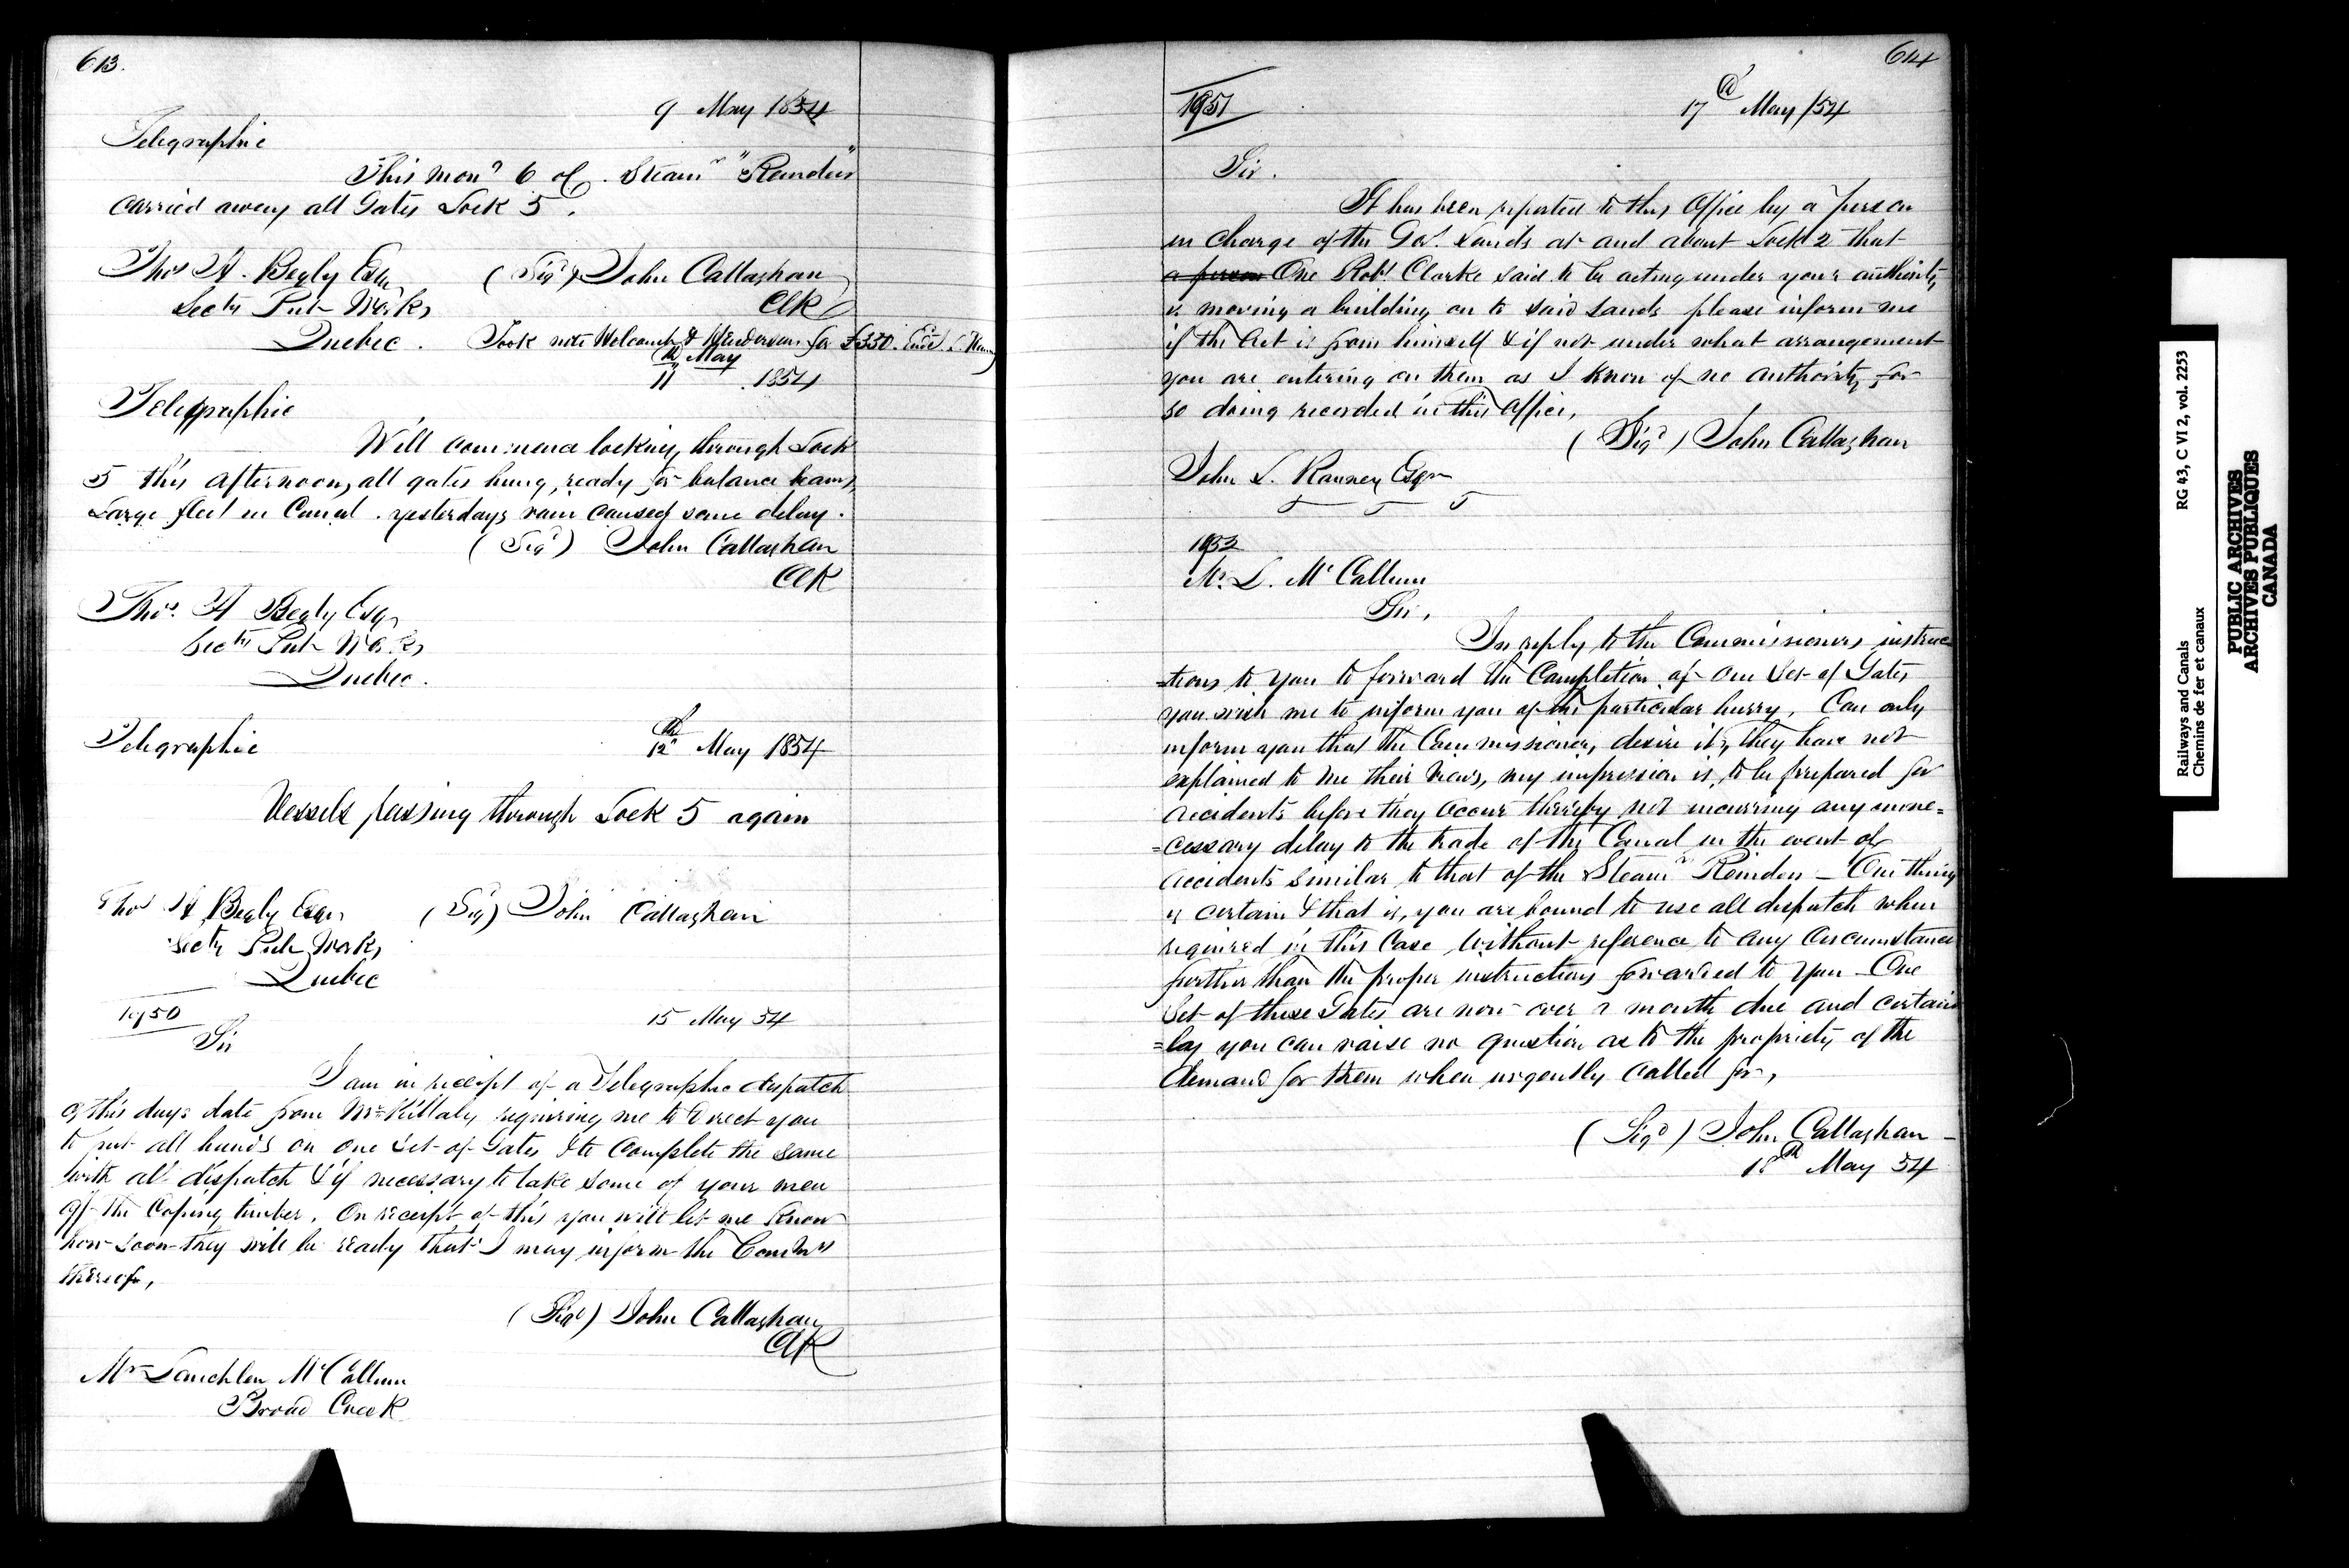 613.
9 May 1854
Telegraphic
This morng 6 o/c. Steamr "Reindeer"
carried away all Gates Lock 5.
Thos A. Begly Esqr (Sigd) John Callaghan
Secty Pub Works Clk
Quebec. Took note Holcomb & Henderson for £330.
11th May 1854
Telegraphic
Will commence locking through Lock
5 this afternoon, all gates hung, ready for balance beams,
Large fleet in Canal. yesterdays rain caused some delay.
(Sigd) John Callaghan
Clk
Thos. A Begly Esqr
Secty Pub Works
Quebec.
Telegraphic 12th May 1854
Vessels passing through Lock 5 again
Thos A Begly Esqr (Sig) John Callaghan
Secty Pub Works
Quebec
1950 15 May 54
Sir
I am in receipt of a Telegraphic despatch
of this days date from Mr Killaly requiring me to direct you
to put all hands on one Set of Gates & to complete the same
with all dispatch & if necessary to take some of your men
off the Coping timber. On receipt of this you will let me know
how soon they will be ready that I may inform the Comrs
thereof,
(Sigd) John Callaghan
Clk
Mr Lauchlen McCallum
Broad Creek
614
1951 17th May /54
Sir.
It has been reported to this Office by a person
in charge of the Gov. Lands at and about Lock 2 that
a person One Robt Clarke said to be acting under your authority
is moving a building on to said Lands please inform me
if the Act is from himself & if not under what arrangement
you are entering on them as I know of no authority for
so doing recorded in this Office,
(Sigd) John Callaghan
John L. Ranney Esqr
1952
Mr. L. McCallum
Sir,
In reply to the Commissioners instruc
=tions to you to forward the Completion of one Set of Gates
you wish me to inform you of the particular hurry. Can only
inform you that the Commissioners desire it, they have not
explained to me their views, my impression is, to be prepared for
accidents before they occur thereby not incurring any unne=
=cessary delay to the trade of the Canal in the event of
accidents similar to that of the Steamr Reindeer – One thing
is certain & that is, you are bound to use all dispatch when
required in this Case without reference to any circumstance
further than the proper instructions forwarded to you – One
Set of these Gates are now over a month due and certain
=ly you can raise no question as to the propriety of the
demand for them when urgently called for,
(Sigd) John Callaghan
18th May 54
Railways and Canals RG 43, C VI 2, vol. 2253
Chemins de fer et canaux
PUBLIC ARCHIVES
ARCHIVES PUBLIQUES
CANADA